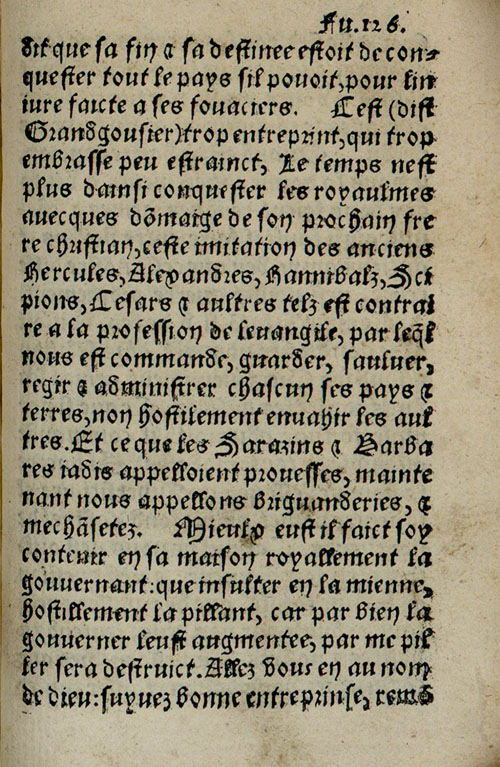 Fu.126.
dit que sa fin & sa destinee estoit de con-
quester tout le pays sil pouoit, pour lin
iure faicte a ses fouaciers. Cest (dist
Grandgousier) trop entreprint, qui trop
embrasse peu estrainct, Le temps nest
plus dainsi conquester les royaulmes
auecques dōmaige de son prochain fre
re christian, ceste imitation des anciens
Hercules, Alexandres, Hannibalz, Sci
pions, Cesars & aultres telz est contrai
re a la profession de leuangile, par leq̄l
nous est commande, guarder, sauluer,
regir & administrer chascun ses pays &
terres, non hostilement enuahir les aul
tres. Et ce que les Sarazins & Barba
res iadis appelloient prouesses, mainte
nant nous appellons briguanderies, &
mechāsetez. Mieulx eust il faict soy
contenir en sa maison royallement la
gouuernant: que insulter en la mienne,
hostillement la pillant, car par bien la
gouuerner leust augmentee, par me pil
ler sera destruict. Allez vous en au nom
de dieu: suyuez bonne entreprinse, remō